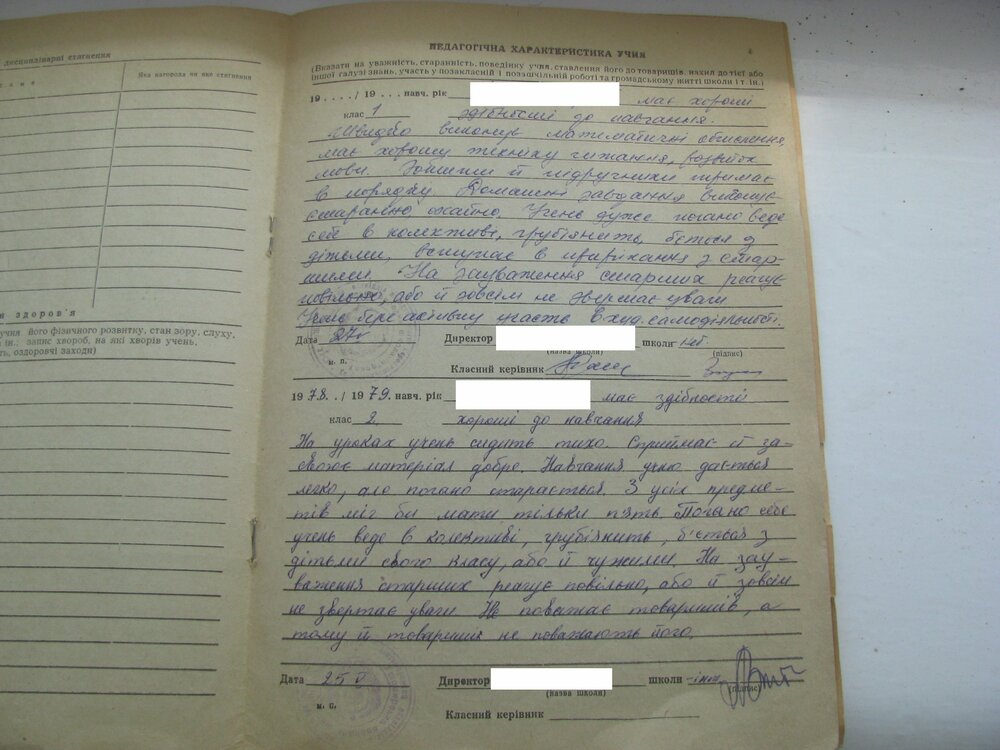 дисциплінарні стягнення
Яка нагорода чи яке стягнення
здоров'я
учня, його фізичного розвитку, стан зору, слуху,
ін.; запис хвороб, на які хворів учень,
оздоровчі заходи)
ПЕДАГОГІЧНА ХАРАКТЕРИСТИКА УЧНЯ
(Вказати на уважність, старанність, поведінку учня, ставлення його до товаришів, нахил до тієї або
іншої галузі знань, участь у позакласній і позашкільній роботі та громадському житті школи і т. ін.)
19 . . . . / 19 . . . навч. рік має хороші
клас 1 здібності до навчання.
Швидко виконує математичні обчислення,
має хорошу техніку читання, розвиток
мови. Зошити й підручники тримає
в порядку. Домашні завдання виконує
старанно, охайно. Учень дуже погано веде
себе в колективі, грубіянить, бється з
дітьми, вступає в пририкання з стар-
шими. На зауваження старших реагує
повільно, або й зовсім не звертає уваги
Учень бере активну участь в худ. самодіяльності.
Дата 27 Директор школи
(назва школи) (підпис)
м. п.
Класний керівник
1978. . / 1979. навч. рік має здібності
клас 2 хороші до навчання
На уроках учень сидить тихо. Сприймає й за-
своює матеріал добре. Навчання учню дається
легко, але погано старається. З усіх предме-
тів міг би мати тільки п'ять. Погано себе
учень веде в колективі, грубіянить, б'ється з
дітьми свого класу, або й чужими. На зау-
важення старших реагує повільно, або й зовсім
не звертає уваги. Не поважає товаришів, а
тому й товариші не поважають його.
Дата 25 Директор школи
(назва школи) (підпис)
Класний керівник